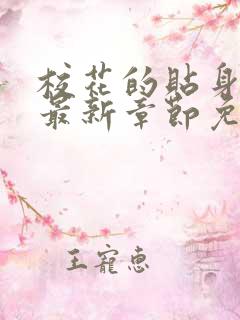 校花的贴身
最新章节免
王宠惠